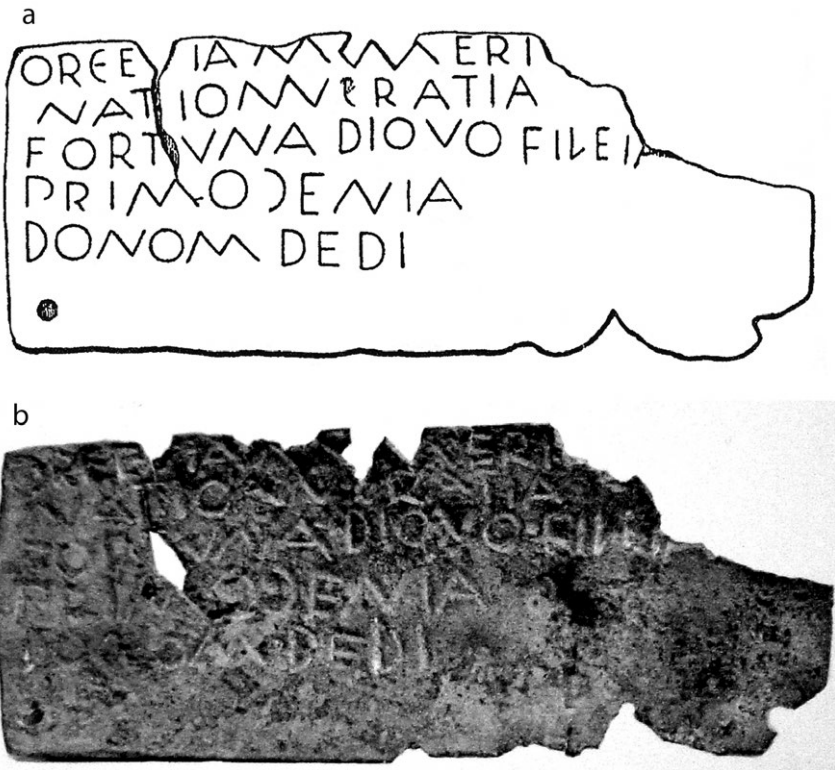 a
ORCE IA NVMERI
NATIONV CRATIA
FORTVNA DIOVO FILEIA
PRIMOCENIA
DONOM DEDI
b
NERI
DIOVO FILEI
OCENIA
DEDI